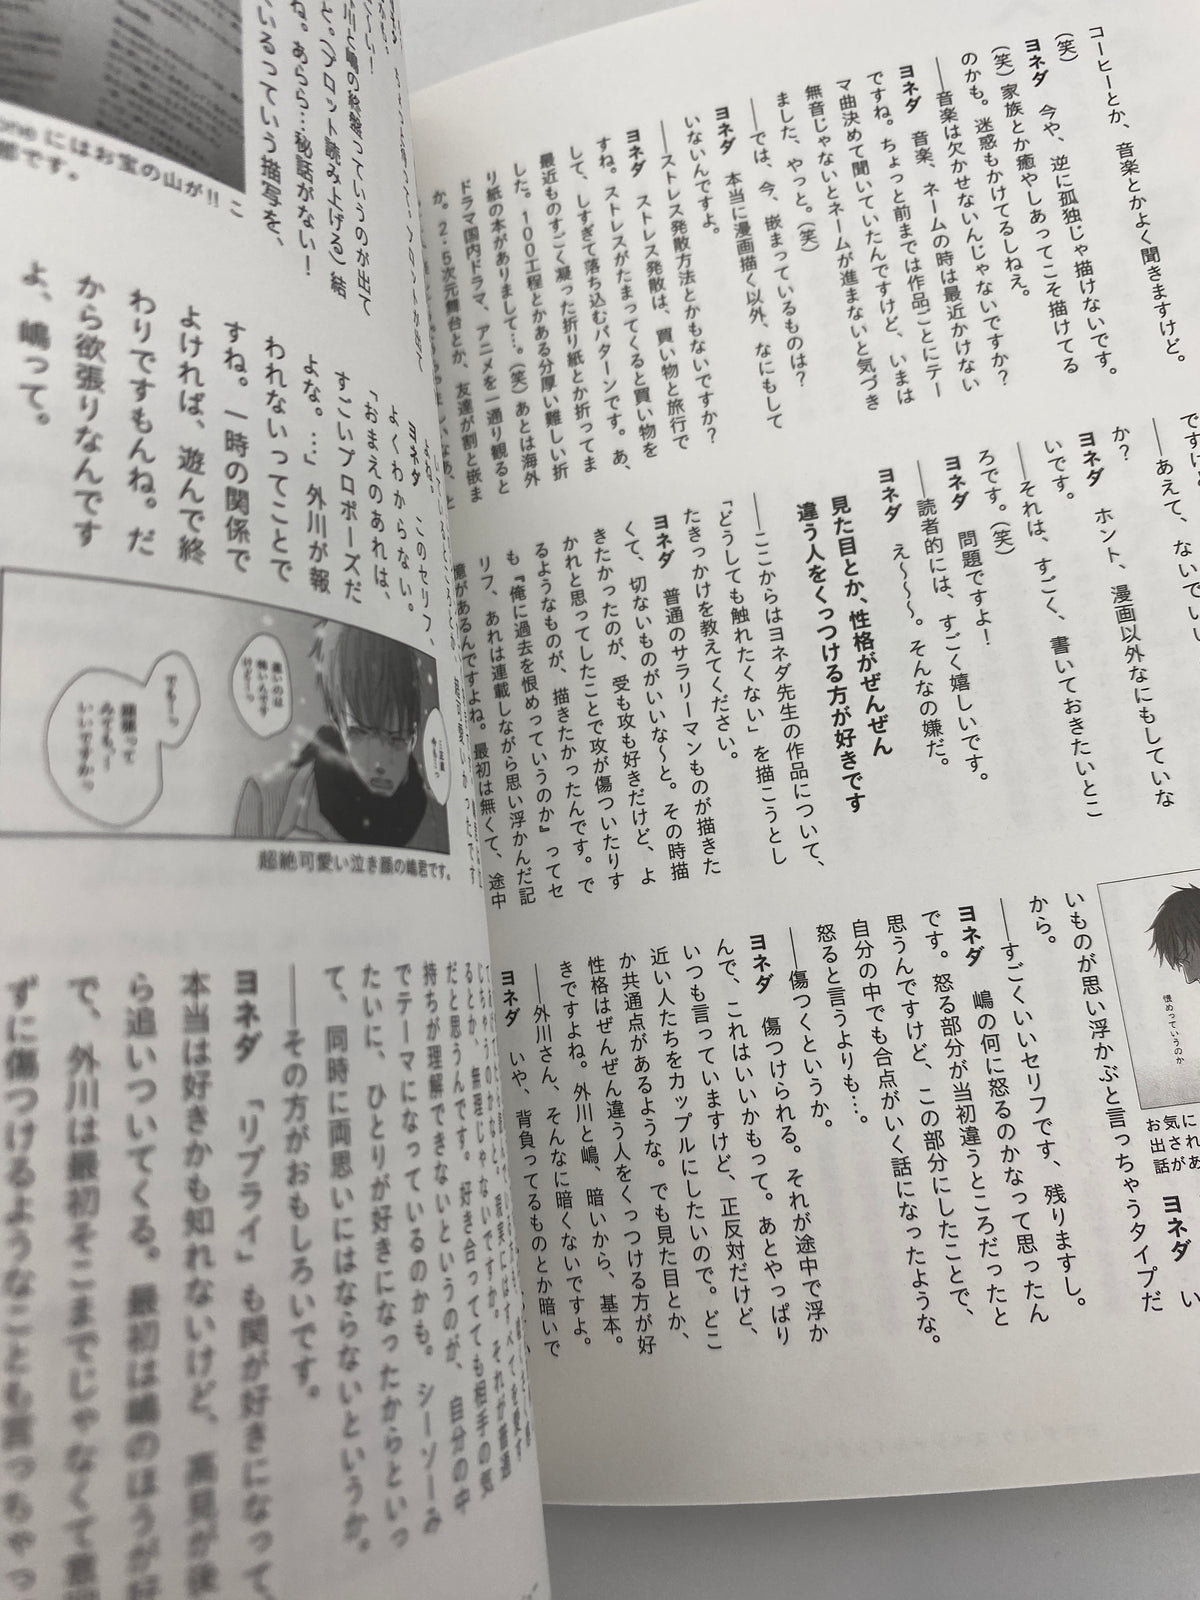 コーヒーとか、音楽とかよく聞きますけど。
(笑)
ヨネダ　今や、逆に孤独じゃ描けないです。
(笑)家族とか癒やしあってこそ描けてる
のかも。迷惑もかけてるしねえ。
――音楽は欠かせないんじゃないですか？
ヨネダ　音楽、ネームの時は最近かけない
ですね。ちょっと前までは作品ごとにテー
マ曲決めて聞いていたんですけど、いまは
無音じゃないとネームが進まないと気づき
ました、やっと。(笑)
――では、今、嵌まっているものは？
ヨネダ　本当に漫画描く以外、なにもして
いないんですよ。
――ストレス発散方法とかもないですか？
ヨネダ　ストレス発散は、買い物と旅行で
すね。ストレスがたまってくると買い物を
して、しすぎて落ち込むパターンです。あ、
最近ものすごく凝った折り紙とか折ってま
した。100工程とかある分厚い難しい折
り紙の本がありまして…。(笑)あとは海外
ドラマ国内ドラマ、アニメを一通り観ると
か。2・5次元舞台とか、友達が割と嵌ま
――あえて、ないでい
か？
ヨネダ　ホント、漫画以外なにもしていな
いです。
――それは、すごく、書いておきたいとこ
ろです。(笑)
ヨネダ　問題ですよ！
――読者的には、すごく嬉しいです。
ヨネダ　え～～～。そんなの嫌だ。
見た目とか、性格がぜんぜん
違う人をくっつける方が好きです
――ここからはヨネダ先生の作品について、
「どうしても触れたくない」を描こうとし
たきっかけを教えてください。
ヨネダ　普通のサラリーマンものが描きた
くて、切ないものがいいな～と。その時描
きたかったのが、受も攻も好きだけど、よ
かれと思ってしたことで攻が傷ついたりす
るようなものが、描きたかったんです。で
も『俺に過去を恨めっていうのか』ってセ
リフ、あれは連載しながら思い浮かんだ記
憶があるんですよね。最初は無くて、途中
恨めっていうのか
ヨネダ　い
いものが思い浮かぶと言っちゃうタイプだ
から。
――すごくいいセリフです、残りますし。
ヨネダ　嶋の何に怒るのかなって思ったん
です。怒る部分が当初違うところだったと
思うんですけど、この部分にしたことで、
自分の中でも合点がいく話になったような。
怒ると言うよりも…。
――傷つくというか。
ヨネダ　傷つけられる。それが途中で浮か
んで、これはいいかもって。あとやっぱり
いつも言っていますけど、正反対だけど、
近い人たちをカップルにしたいので。どこ
か共通点があるような。でも見た目とか、
性格はぜんぜん違う人をくっつける方が好
きですよね。外川と嶋、暗いから、基本。
――外川さん、そんなに暗くないですよ。
ヨネダ　いや、背負ってるものとか暗いで
one にはお宝の山が!! こ
です。
と。(プロット読み上げる)結
ね。あらら…秘話がない！
いるっていう描写を、
ヨネダ　このセリフ、
よくわからない。
「おまえのあれは、
すごいプロポーズだ
よな。…」外川が報
われないってことで
すね。一時の関係で
よければ、遊んで終
わりですもんね。だ
から欲張りなんです
よ、嶋って。
でも…っ
頑張って
みても…
いいですかっ
超絶可愛い泣き顔の嶋君です。
じちゃうのかなと。現実にはすべてを愛す
るとか、無理じゃないですか。それが普通
だと思うんです。好き合ってても相手の気
持ちが理解できないというのが、自分の中
でテーマになっているのかも。シーソーみ
たいに、ひとりが好きになったからといっ
て、同時に両思いにはならないというか。
――その方がおもしろいです。
ヨネダ　「リプライ」も関が好きになって、
本当は好きかも知れないけど、高見が後
ら追いついてくる。最初は嶋のほうが好
で、外川は最初そこまでじゃなくて意
ずに傷つけるようなことも言っちゃっ